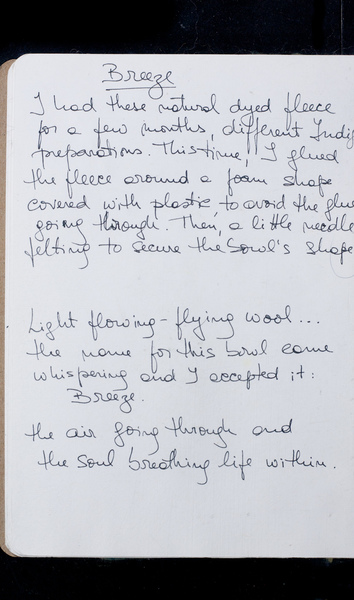 Breeze
I had these natural dyed fleece
for a few months, different Indig
preparations. This time, I glued
the fleece around a foam shape
covered with plastic, to avoid the glue
going through. Then, a little needle
felting to secure the bowl's shape
Light flowing-flying wool...
the name for this bowl came
whispering and I accepted it:
Breeze.
the air going through and
the soul breathing life within.